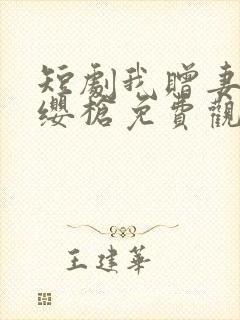 短劇我贈妻
纓槍免費觀
王建華